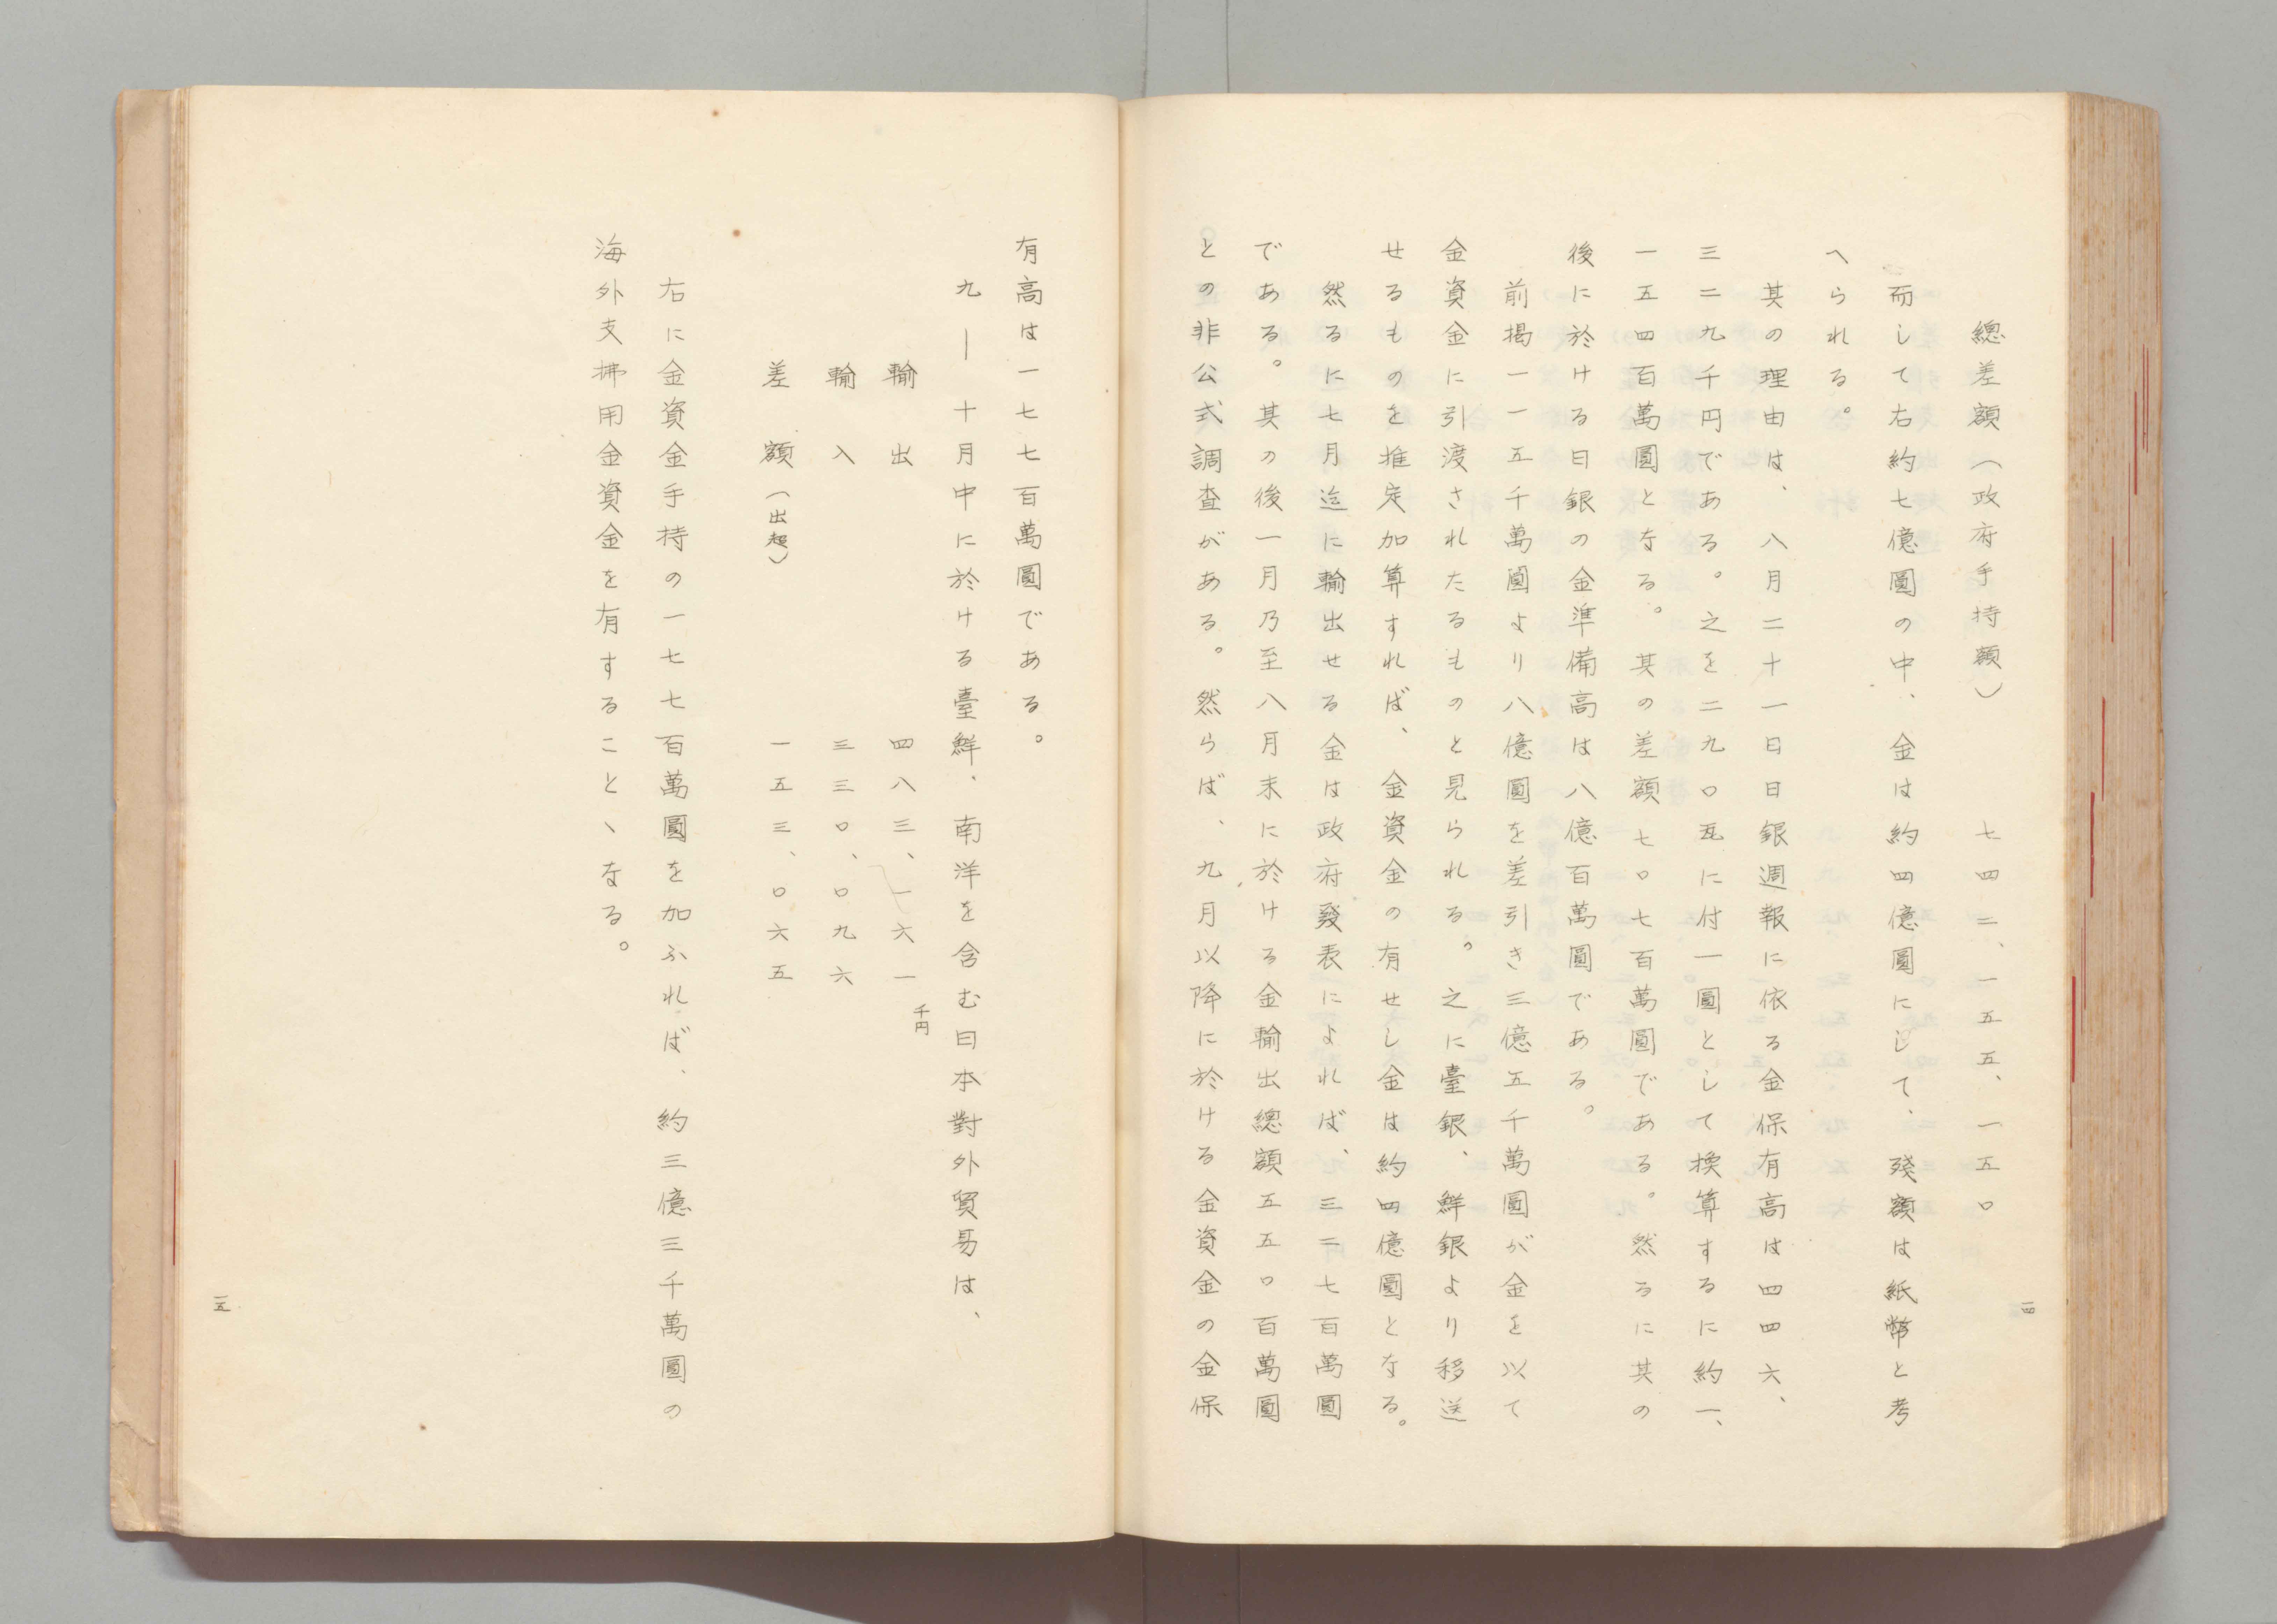 總差額（政府手持額）　七四二、一五五、一五〇
而して右約七億圓の中、金は約四億圓にして、殘額は紙幣と考
へられる。
其の理由は、八月二十一日日銀週報に依る金保有高は四四六、
三二九千円である。之を二九〇瓱に付一圓として換算するに約一、
一五四百萬圓となる。其の差額七〇七百萬圓である。然るに其の
後に於ける日銀の金準備高は八億百萬圓である。
前揭一一五千萬圓より八億圓を差引き三億五千萬圓が金を以て
金資金に引渡されたるものと見られる。之に臺銀、鮮銀より移送
せるものを推定加算すれば、金資金の有せし金は約四億圓となる。
然るに七月迄に輸出せる金は政府發表によれば、三二七百萬圓
である。其の後一月乃至八月末に於ける金輸出總額五五〇百萬圓
との非公式調査がある。然らば、九月以降に於ける金資金の金保
一四
有高は一七七百萬圓である。
九―十月中に於ける臺鮮、南洋を含む日本對外貿易は、
輸出　四八三、一六一千円
輸入　三三〇、〇九六
差額（出超）　一五三、〇六五
右に金資金手持の一七七百萬圓を加ふれば、約三億三千萬圓の
海外支拂用金資金を有することゝなる。
一五